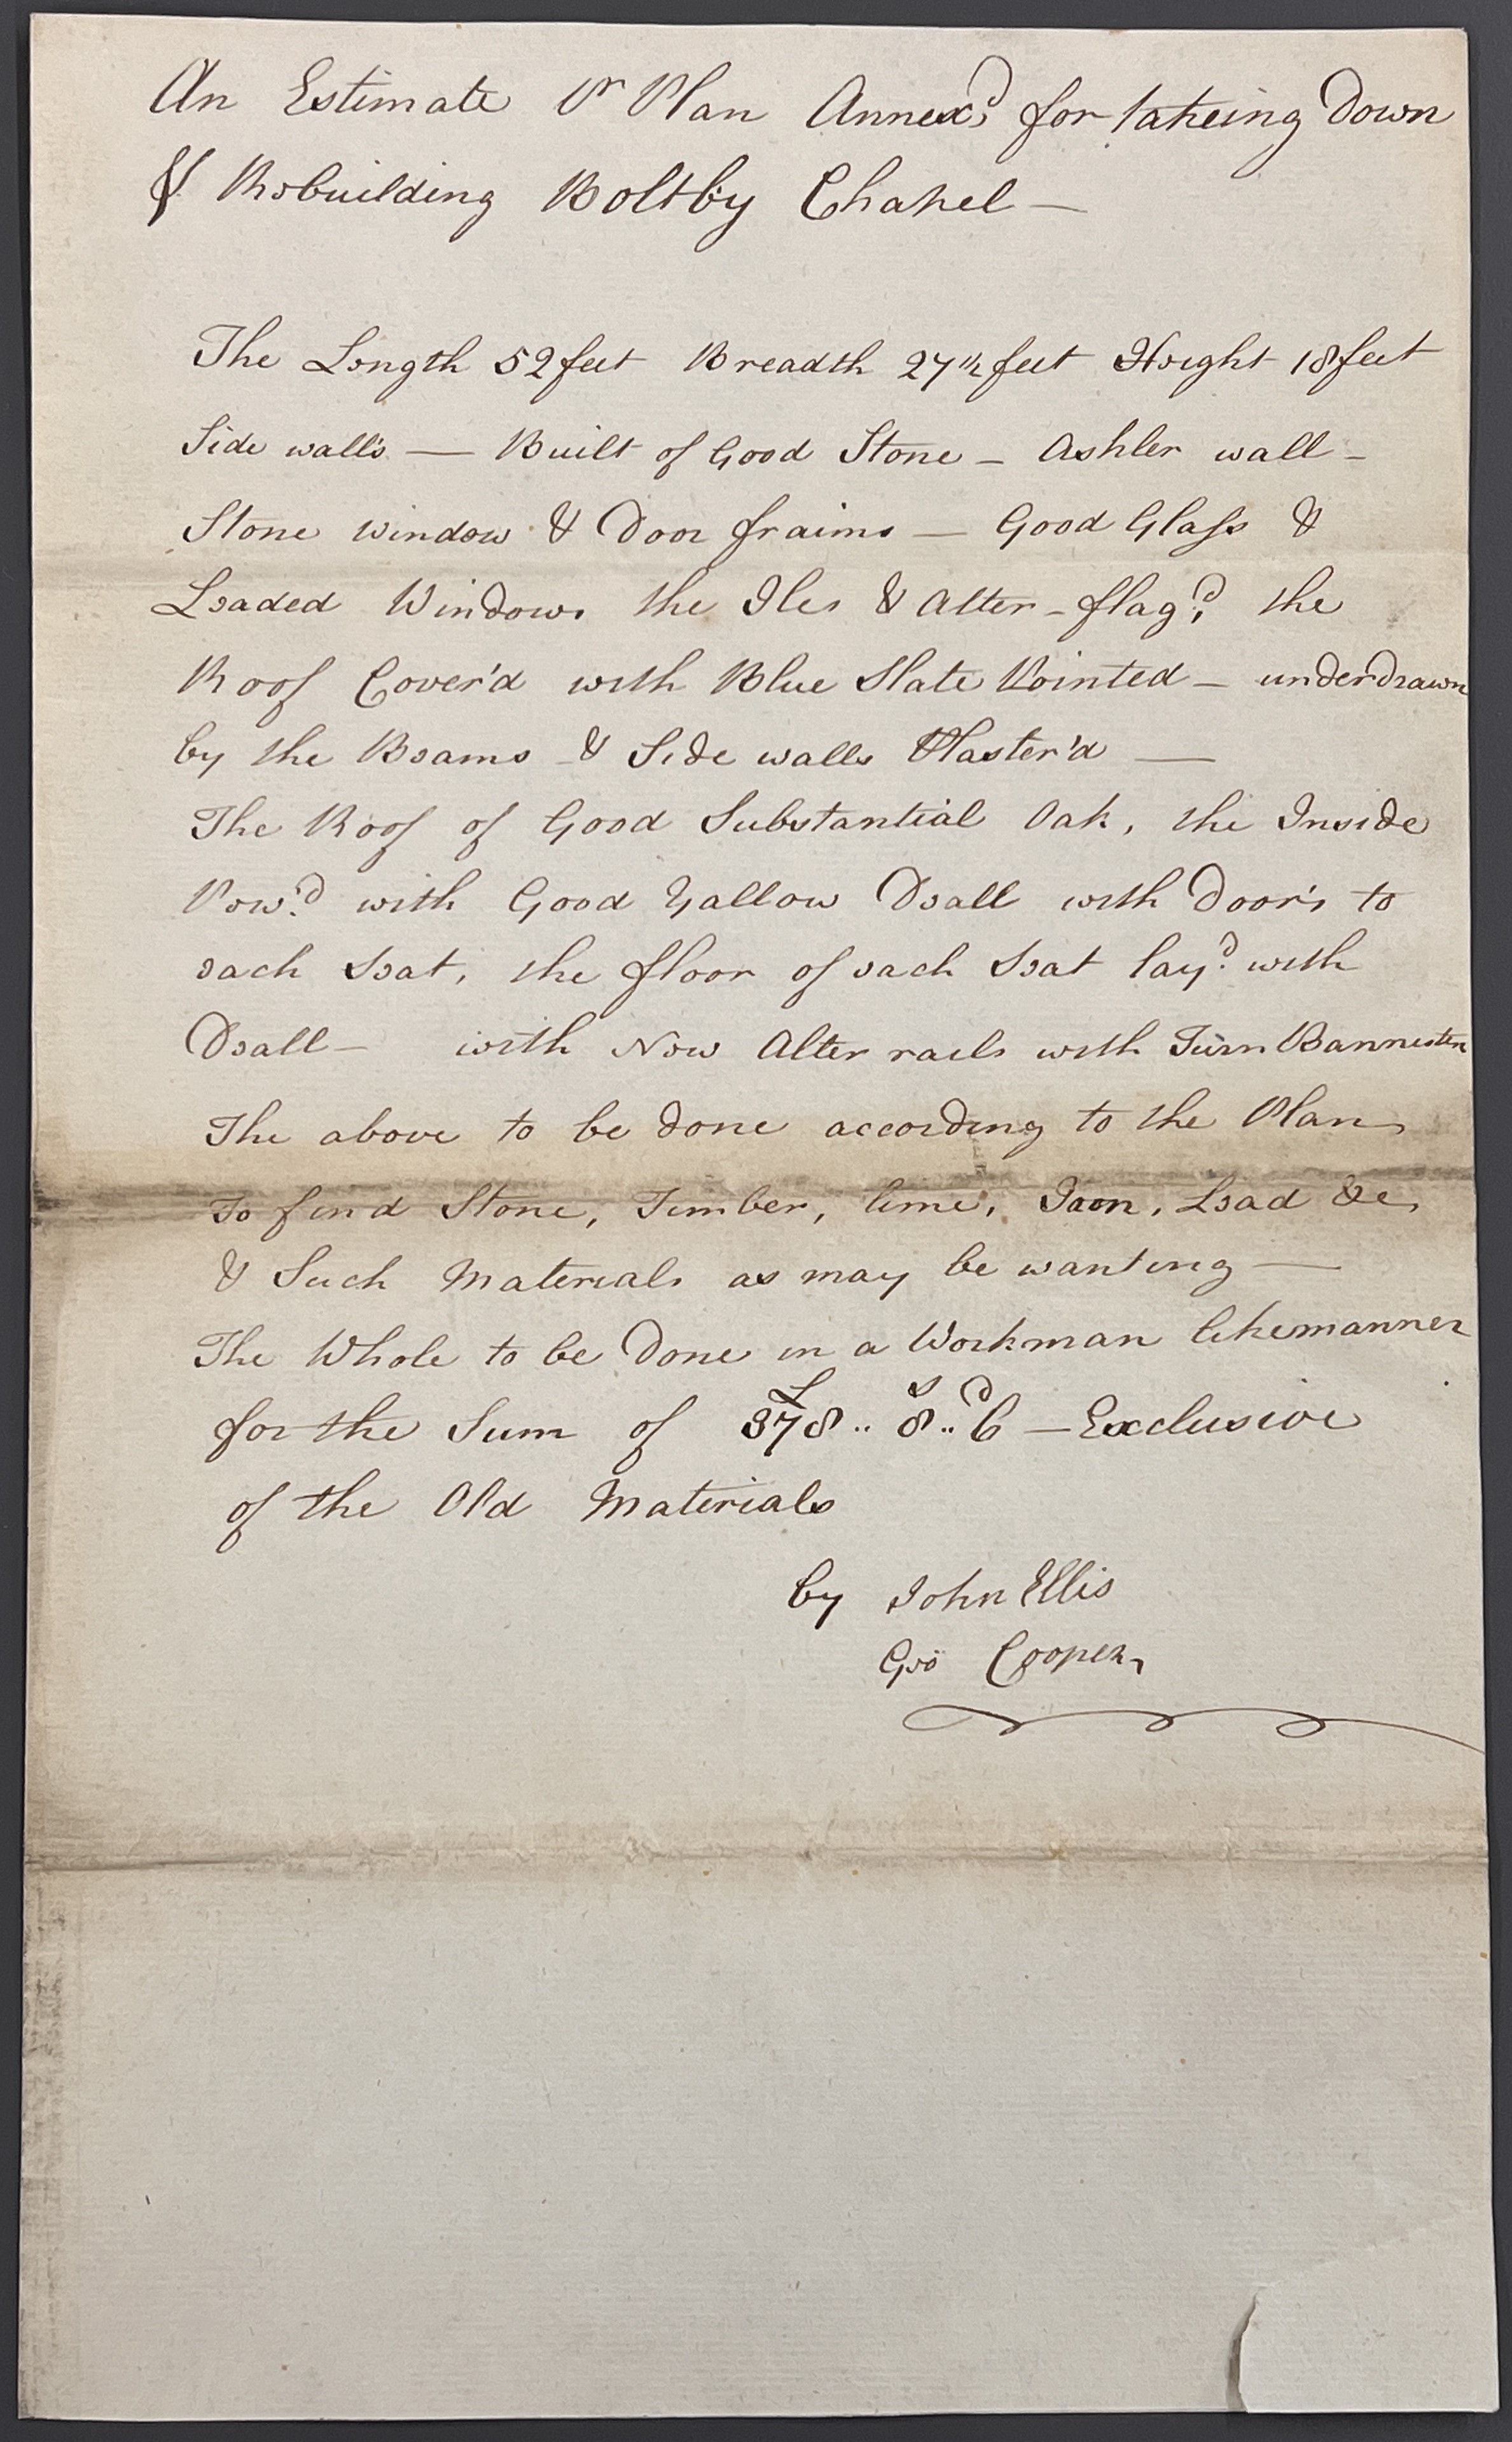 An Estimate Pr Plan Annex'd for takeing Down
& Rebuilding Boltby Chapel —
The Length 52 feet Breadth 27½ feet Height 18 feet
Side walls — Built of Good Stone – Ashler wall –
Stone window & Door fraims — Good Glass &
Leaded Windows the Iles & Alter – flag'd, the
Roof Cover'd with Blue Slate Pointed – underdrawn
by the Beams & Side walls Plaster'd —
The Roof of Good Substantial Oak, the Inside
Pew'd with Good Yallow Deall with Door's to
each Seat, the floor of each Seat lay'd with
Deall – with New Alter rails with Turn Bannister
The above to be done according to the Plan,
To find Stone, Timber, lime, Iron, Lead &c,
& Such Materials as may be wanting —
The Whole to be Done in a Workman likemanner
for the Sum of £378 .. 8s .. 6d — Exclusive
of the Old Materials
by John Ellis
Geo Cooper